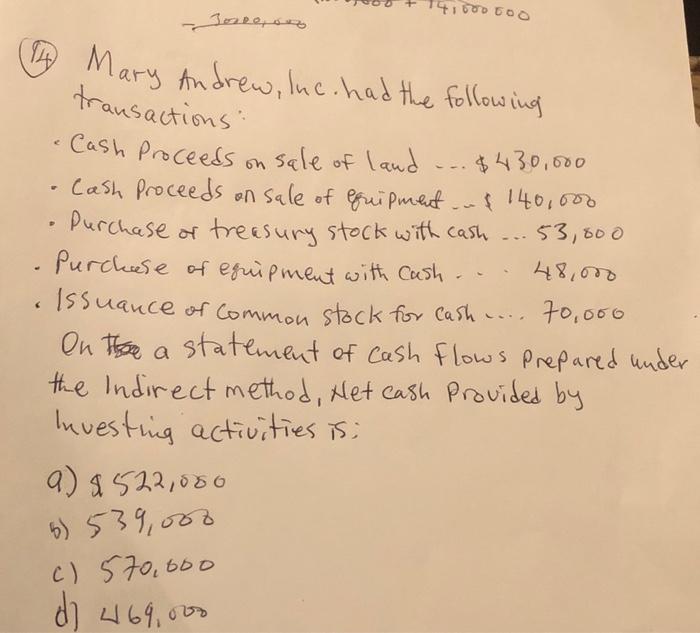 + 141,000 000
(14) Mary Andrew, Inc. had the following
transactions:
• Cash Proceeds on sale of land --- $430,000
• Cash Proceeds on sale of equipment --- $ 140,000
• Purchase of treasury stock with cash --- 53,000
• Purchase of equipment with cash - - - 48,000
• Issuance of Common stock for cash .... 70,000
On a statement of cash flows prepared under
the Indirect method, Net cash Provided by
Investing activities is:
a) $522,000
b) 539,000
c) 570,000
d) 469,000